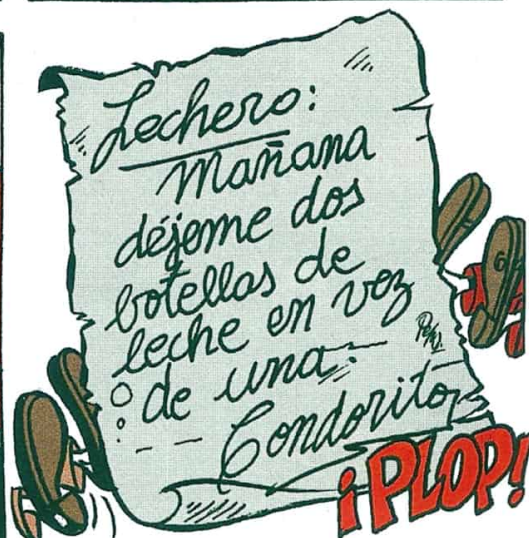 Lechero:
Mañana
déjeme dos
botellas de
leche en vez
de una.
Condorito
¡PLOP!